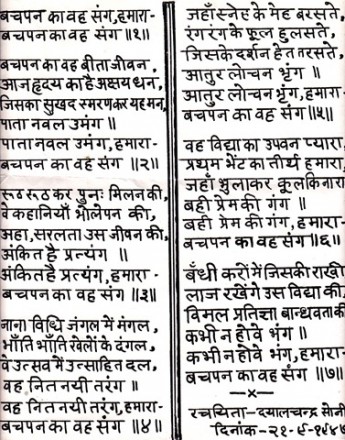 बचपन का वह संग, हमारा-
बचपन का वह संग ॥१॥
बचपन का वह बीता जीवन,
आज हृदय का है अक्षय धन,
जिसका सुखद स्मरण कर यह मन,
पाता नवल उमंग ॥
पाता नवल उमंग, हमारा-
बचपन का वह संग ॥२॥
रूठ रूठ कर पुनः मिलन की,
वे कहानियाँ भोलेपन की,
अहा, सरलता उस जीवन की,
अंकित है प्रत्यंग ॥
अंकित है प्रत्यंग, हमारा-
बचपन का वह संग ॥३॥
नाना विधि जंगल में मंगल,
भाँति भाँति खेलों के दंगल,
वे उत्सव में उत्साहित दल,
वह नित नयी तरंग ॥
वह नित नयी तरंग, हमारा-
बचपन का वह संग ॥४॥
जहाँ स्नेह के मेह बरसते,
रंग रंग के फूल हुलसते,
जिसके दर्शन हेत तरसते,
आतुर लोचन भृंग ॥
आतुर लोचन भृंग, हमारा-
बचपन का वह संग ॥५॥
वह विद्या का उपवन प्यारा,
प्रथम भेंट का तीर्थ हमारा,
जहाँ भुलाकर कूल किनारा
बही प्रेम की गंग ॥
बही प्रेम की गंग, हमारा-
बचपन का वह संग ॥६॥
बँधी करों में जिसकी राखी
लाज रखेंगे उस विद्या की,
विमल प्रतिज्ञा बान्धवता की
कभी न होवे भंग ॥
कभी न होवे भंग, हमारा-
बचपन का वह संग ॥७॥
—x—
रचयिता-दयालचन्द्र सोनी
दिनांक-२१-९-१९४५